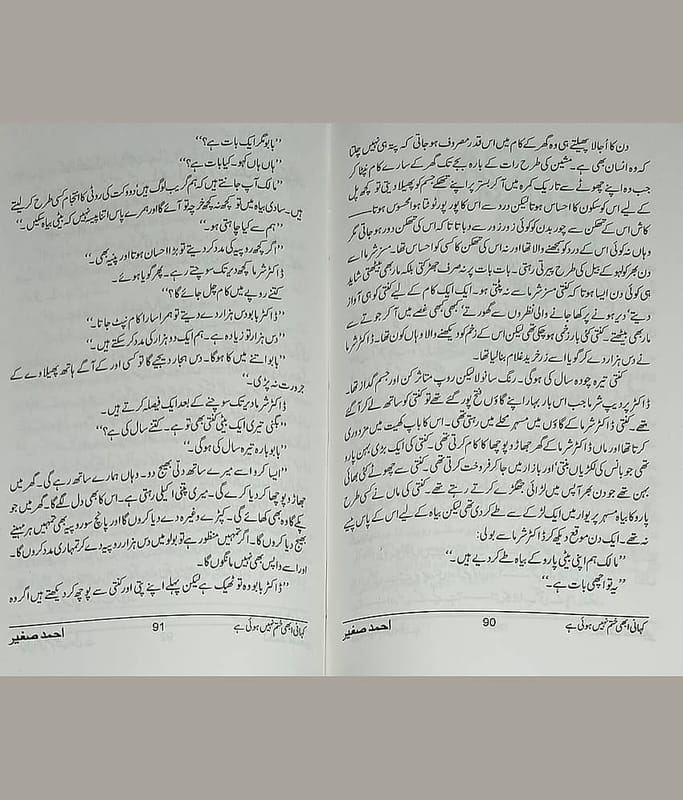 دن کا اُجالا پھیلتے ہی وہ گھر کے کام میں اس قدر مصروف ہو جاتی کہ پتہ ہی نہیں چلتا
کہ وہ انسان بھی ہے۔ مشین کی طرح رات کے بارہ بجے تک گھر کے سارے کام نپٹا کر
جب وہ اپنے چھوٹے سے تاریک کمرہ میں آ کر بستر پر اپنے تھکے جسم کو پھیلا دیتی تو کچھ پل
کے لیے اس کو سکون کا احساس ہوتا لیکن درد سے اس کا پور پور ٹوٹتا ہوا محسوس ہوتا۔
کاش اس کے تھکن سے چور بدن کو کوئی زور زور سے دباتا تا کہ اس کی تھکن دور ہو جاتی مگر
وہاں نہ کوئی اس کے درد کو سمجھنے والا تھا اور نہ اس کی تھکن کا کسی کو احساس تھا۔ مسز شرما اسے
دن بھر کولہو کے بیل کی طرح پیرتی رہتی۔ بات بات پر نہ صرف جھڑکتی بلکہ مار بھی بیٹھتی شاید
ہی کوئی دن ایسا ہوتا کہ کنتی مسز شرما سے نہ پٹتی ہو۔ ایک ایک کام کے لیے کنتی کو ہی آواز
دیتے ’دیر ہونے پر کھا جانے والی نظروں سے گھورتے‘ کبھی کبھی غصے میں آ کر جوتے سے
مار بھی بیٹھتے۔ کنتی کئی بار زخمی ہو چکی تھی لیکن اس کے زخم کو دیکھنے والا وہاں کون تھا۔ ڈاکٹر شرما
نے دس ہزار دے کر گویا اسے زر خرید غلام بنا لیا تھا۔
کنتی تیرہ چودہ سال کی ہوگی۔ رنگ سانولا لیکن روپ متاثر کن اور جسم گداز تھا۔
ڈاکٹر پردیپ شرما جب اس بار بہار اپنے گاؤں فتح پور گئے تھے تو کنتی کو ساتھ لے کر آ گئے
تھے۔ کنتی ڈاکٹر شرما کے گاؤں میں مسہر محلے میں رہتی تھی۔ اس کا باپ کھیت میں مزدوری
کرتا تھا اور ماں ڈاکٹر شرما کے گھر جھاڑو پوچھا کا کام کرتی تھی۔ کنتی کی ایک بڑی بہن پارو
تھی جو بانس کی لکڑیاں بنتی‘ اور بازار میں جا کر فروخت کرتی تھی۔ کنتی سے چھوٹے کئی بھائی
بہن تھے جو دن بھر آپس میں لڑائی جھگڑے کرتے رہتے تھے۔ کنتی کی ماں نے کسی طرح
پارو کا بیاہ مسہر پریوار میں ایک لڑکے سے طے کر دی تھی لیکن بیاہ کے لیے اس کے پاس پیسے
نہ تھے۔ ایک دن موقع دیکھ کر ڈاکٹر شرما سے بولی:
”مالک ہم اپنی بیٹی پارو کے بیاہ طے کر دیے ہیں۔“
”یہ تو اچھی بات ہے۔“
کہانی ابھی ختم نہیں ہوئی ہے 90 احمد صغیر
”بابو مگر ایک بات ہے؟“
”ہاں ہاں کہو۔ کیا بات ہے؟“
”مالک آپ جانتے ہیں کہ ہم گریب لوگ ہیں دو وکت کی روٹی کا انتجام کسی طرح کر لیتے
ہیں۔ سادی بیاہ میں تو کچھ نہ کچھ خرچہ تو آئے گا اور ہمرے پاس اتنا پیسہ نہیں کہ بیٹی بیاہ سکیں۔“
”ہم سے کیا چاہتی ہو۔“
”اگر کچھ روپیہ کی مدد کر دیتے تو بڑا احسان ہوتا اور پنیہ بھی۔“
ڈاکٹر شرما کچھ دیر تک سوچتے رہے۔ پھر گویا ہوئے۔
کتنے روپے میں کام چل جائے گا؟“
”ڈاکٹر بابو دس ہزار دے دیتے تو ہمرا سارا کام نپٹ جاتا۔“
”دس ہزار تو زیادہ ہے۔ ہم ایک دو ہزار کی مدد کر سکتے ہیں۔“
”بابو اتنے میں کا ہوگا۔ دس ہجار دیجیے گا تو کسی اور کے آگے ہاتھ پھیلاوے کے
جرورت نہ پڑی۔“
ڈاکٹر شرما دیر تک سوچنے کے بعد ایک فیصلہ کرتے ہیں۔
”جگنی تیری ایک بیٹی کنتی بھی تو ہے۔ کتنے سال کی ہے؟“
”بابو بارہ تیرہ سال کی ہوگی۔“
”ایسا کرو اسے میرے ساتھ دلی بھیج دو۔ وہاں ہمارے ساتھ رہے گی۔ گھر میں
جھاڑو پوچھا کر دیا کرے گی۔ میری پتنی اکیلی رہتی ہے۔ اس کا بھی دل لگے گا۔ گھر میں جو
پکے گا وہ بھی کھائے گی۔ کپڑے وغیرہ دے دیا کروں گا اور پانچ سو روپیہ بھی تمہیں ہر مہینے
بھیج دیا کروں گا۔ اگر تمہیں منظور ہے تو بولو میں دس ہزار روپیہ دے کر تمہاری مدد کروں گا۔
اور اسے واپس بھی نہیں مانگوں گا۔
”ڈاکٹر بابو وہ تو ٹھیک ہے لیکن پہلے اپنے پتی اور کنتی سے پوچھ کر دیکھتے ہیں اگر وہ
کہانی ابھی ختم نہیں ہوئی ہے 91 احمد صغیر